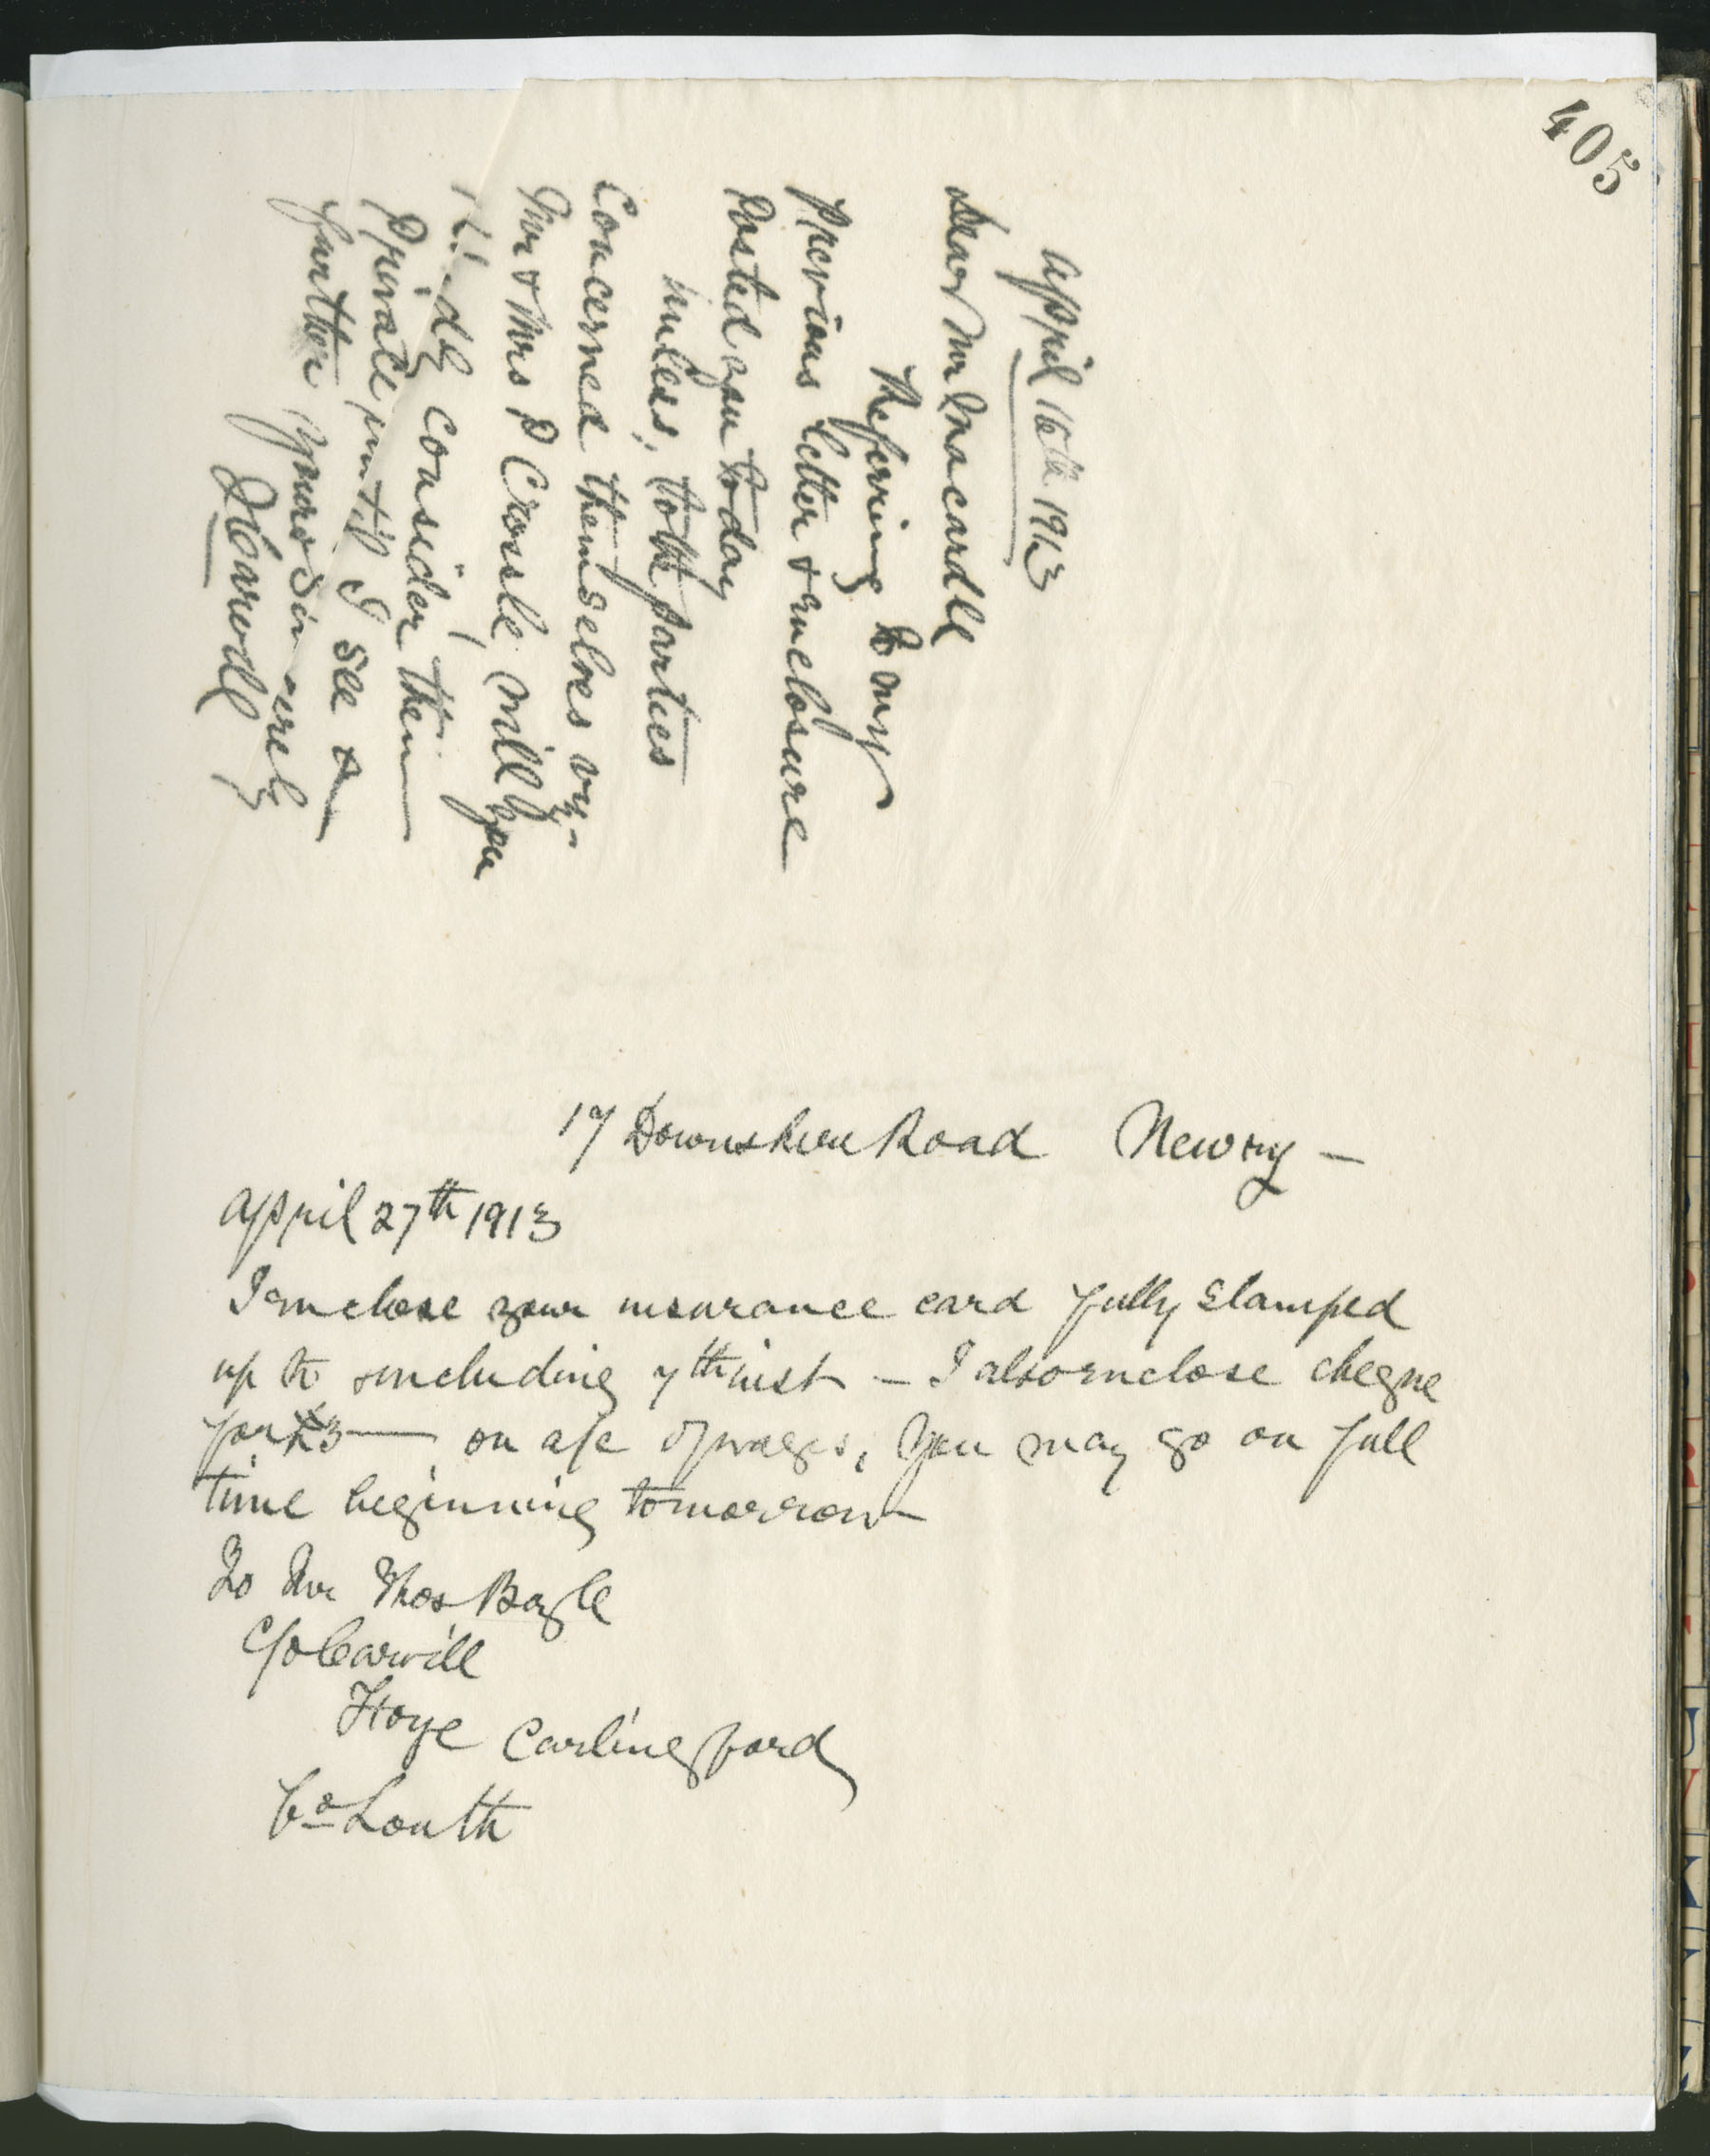 405
April 16th 1913
Dear Mr Macardle
Referring to my
previous letter & enclosure
Posted you today
Unless, both parties
Concerned themselves viz-
Mr & Mrs P Crosslé will you
Kindly consider them
private until I see &
further Yours Sincerely
17 Downshire Road Newry -
April 27th 1913
I enclose your insurance card fully stamped
up to & including 7th inst - I also enclose cheque
for £3 — on a/c of wages, You may go on full
time beginning tomorrow
To Mr Thos Boyle
C/o Carvill
Carlingford
Co Louth